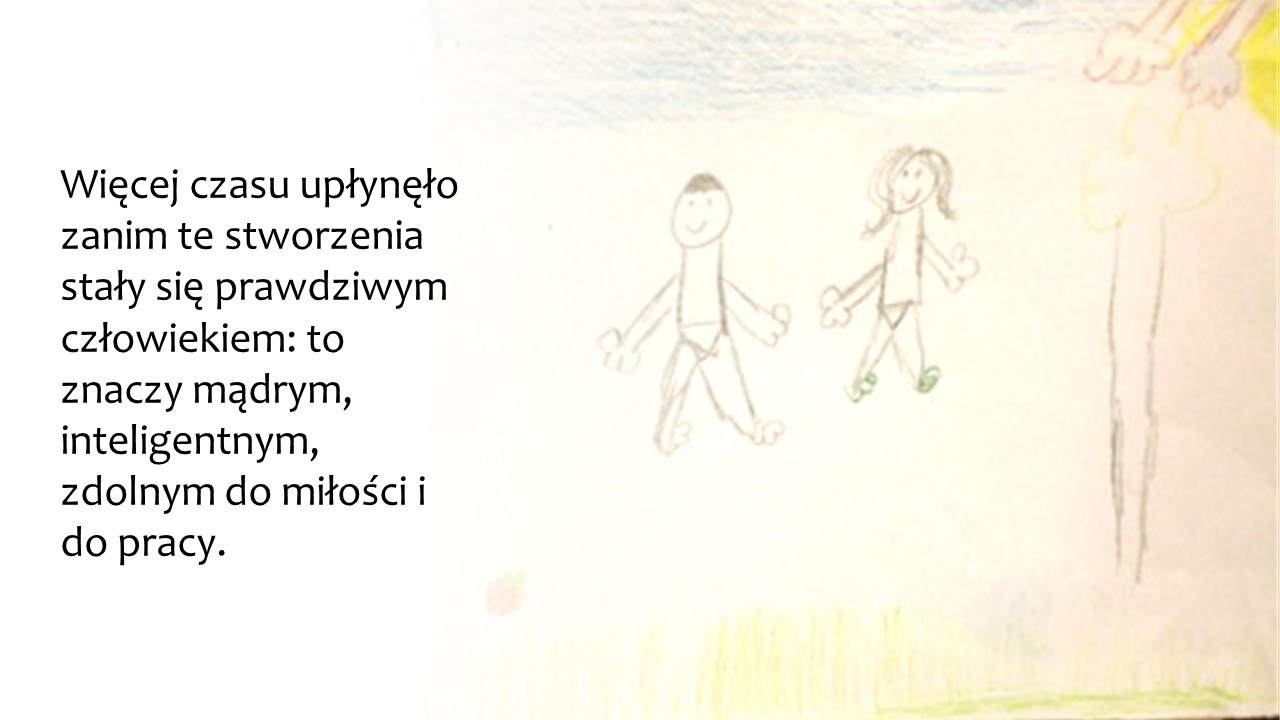 Więcej czasu upłynęło
zanim te stworzenia
stały się prawdziwym
człowiekiem: to
znaczy mądrym,
inteligentnym,
zdolnym do miłości i
do pracy.